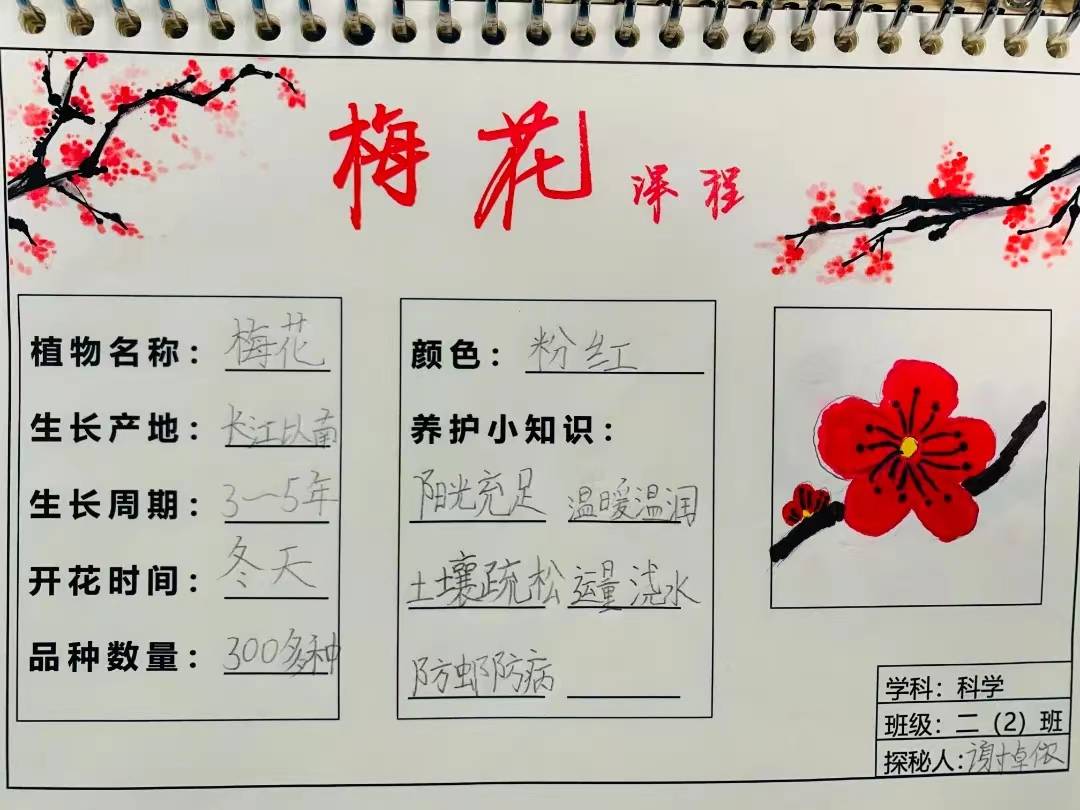 梅花 课程
植物名称：梅花
生长产地：长江以南
生长周期：3—5年
开花时间：冬天
品种数量：300多种
颜色：粉红
养护小知识：
阳光充足 温暖温润
土壤疏松 适量浇水
防虫防病
学科：科学
班级：二（2）班
探秘人：谢